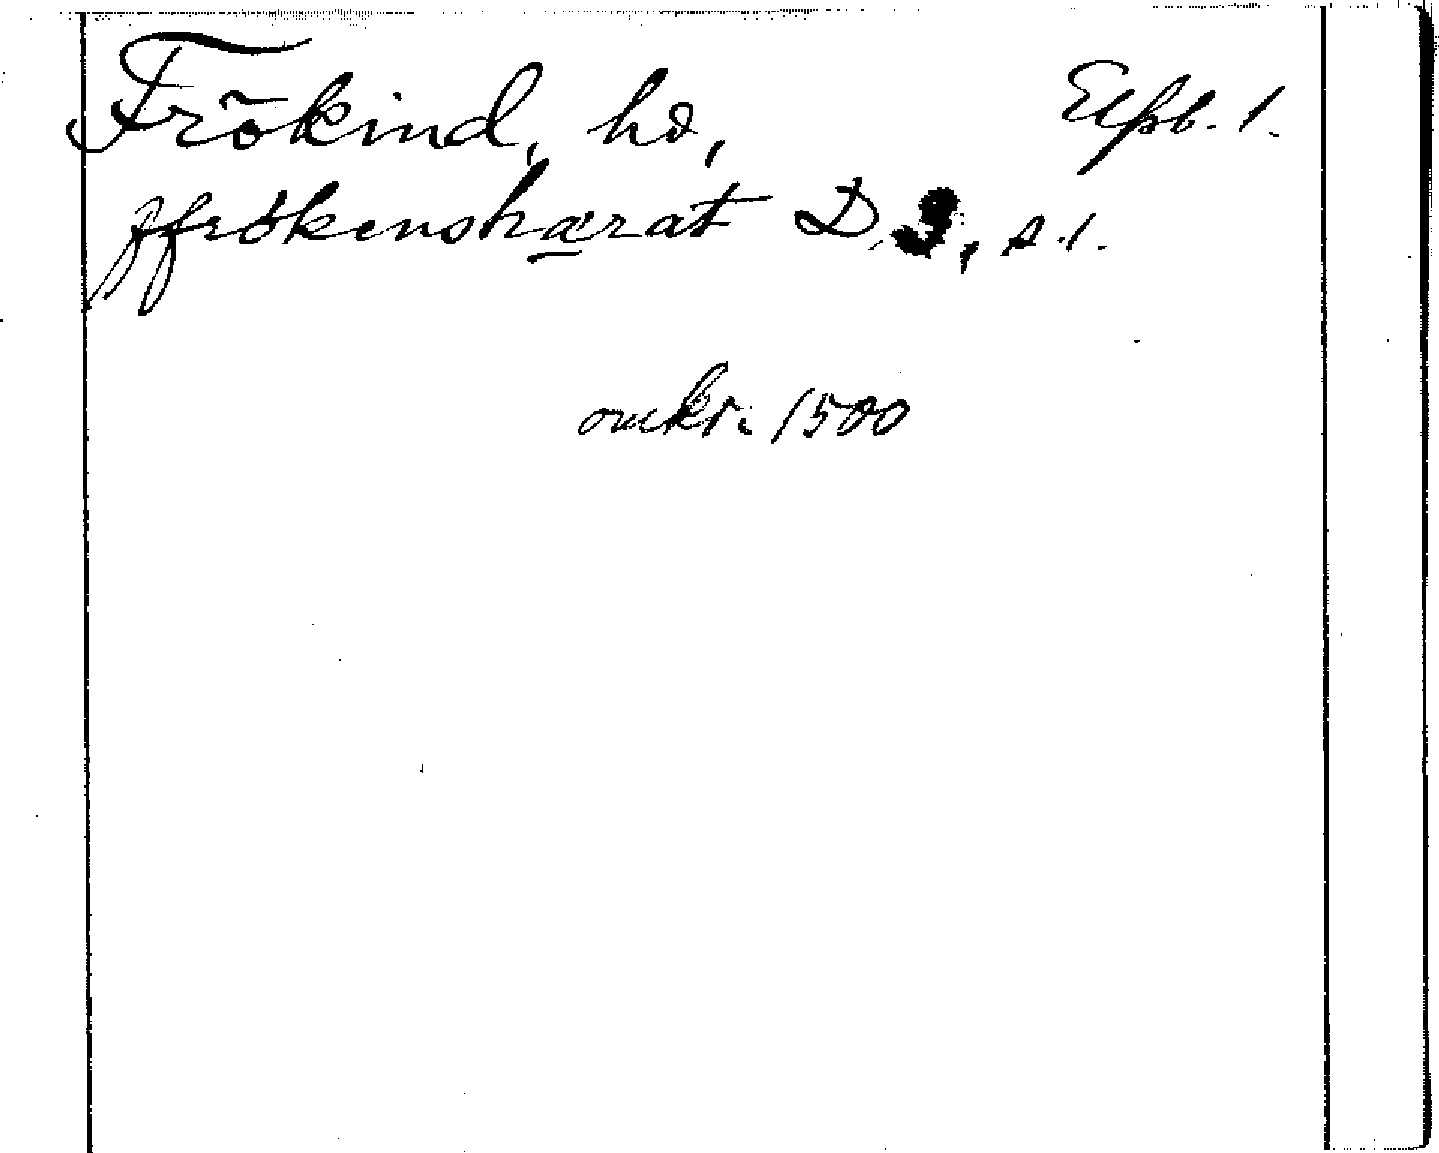 Frökind, hd, Elfsb. l.
ffrökensharat D. 3, s. 1.
omkr. 1500